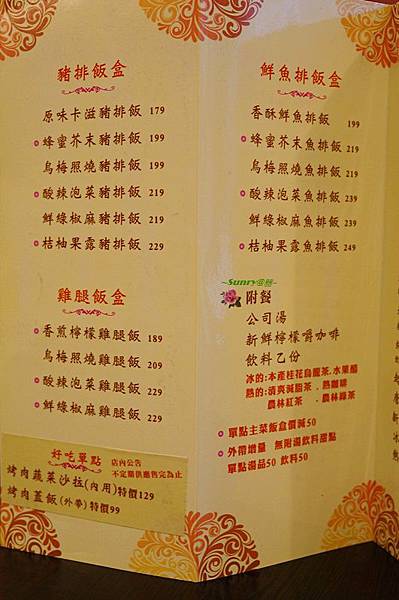 豬排飯盒
原味卡滋豬排飯 179
蜂蜜芥末豬排飯 199
烏梅照燒豬排飯 199
酸辣泡菜豬排飯 219
鮮綠椒麻豬排飯 219
桔柚果露豬排飯 229
雞腿飯盒
香煎檸檬雞腿飯 189
烏梅照燒雞腿飯 209
酸辣泡菜雞腿飯 229
鮮綠椒麻雞腿飯 229
好吃單點 店內公告
不定期供應售完為止
烤肉蔬菜沙拉(內用)特價129
烤肉蓋飯(外帶)特價99
鮮魚排飯盒
香酥鮮魚排飯 199
蜂蜜芥末魚排飯 219
烏梅照燒魚排飯 219
酸辣泡菜魚排飯 239
鮮綠椒麻魚排飯 239
桔柚果露魚排飯 249
~Sunny
附餐
公司湯
新鮮檸檬嚼咖啡
飲料乙份
冰的:本產桂花烏龍茶.水果醋
熱的:清爽減脂茶.熱咖啡
農林紅茶.農林綠茶
單點主菜飯盒價減50
外帶增量 無附湯飲料甜點
單點湯品50 飲料50